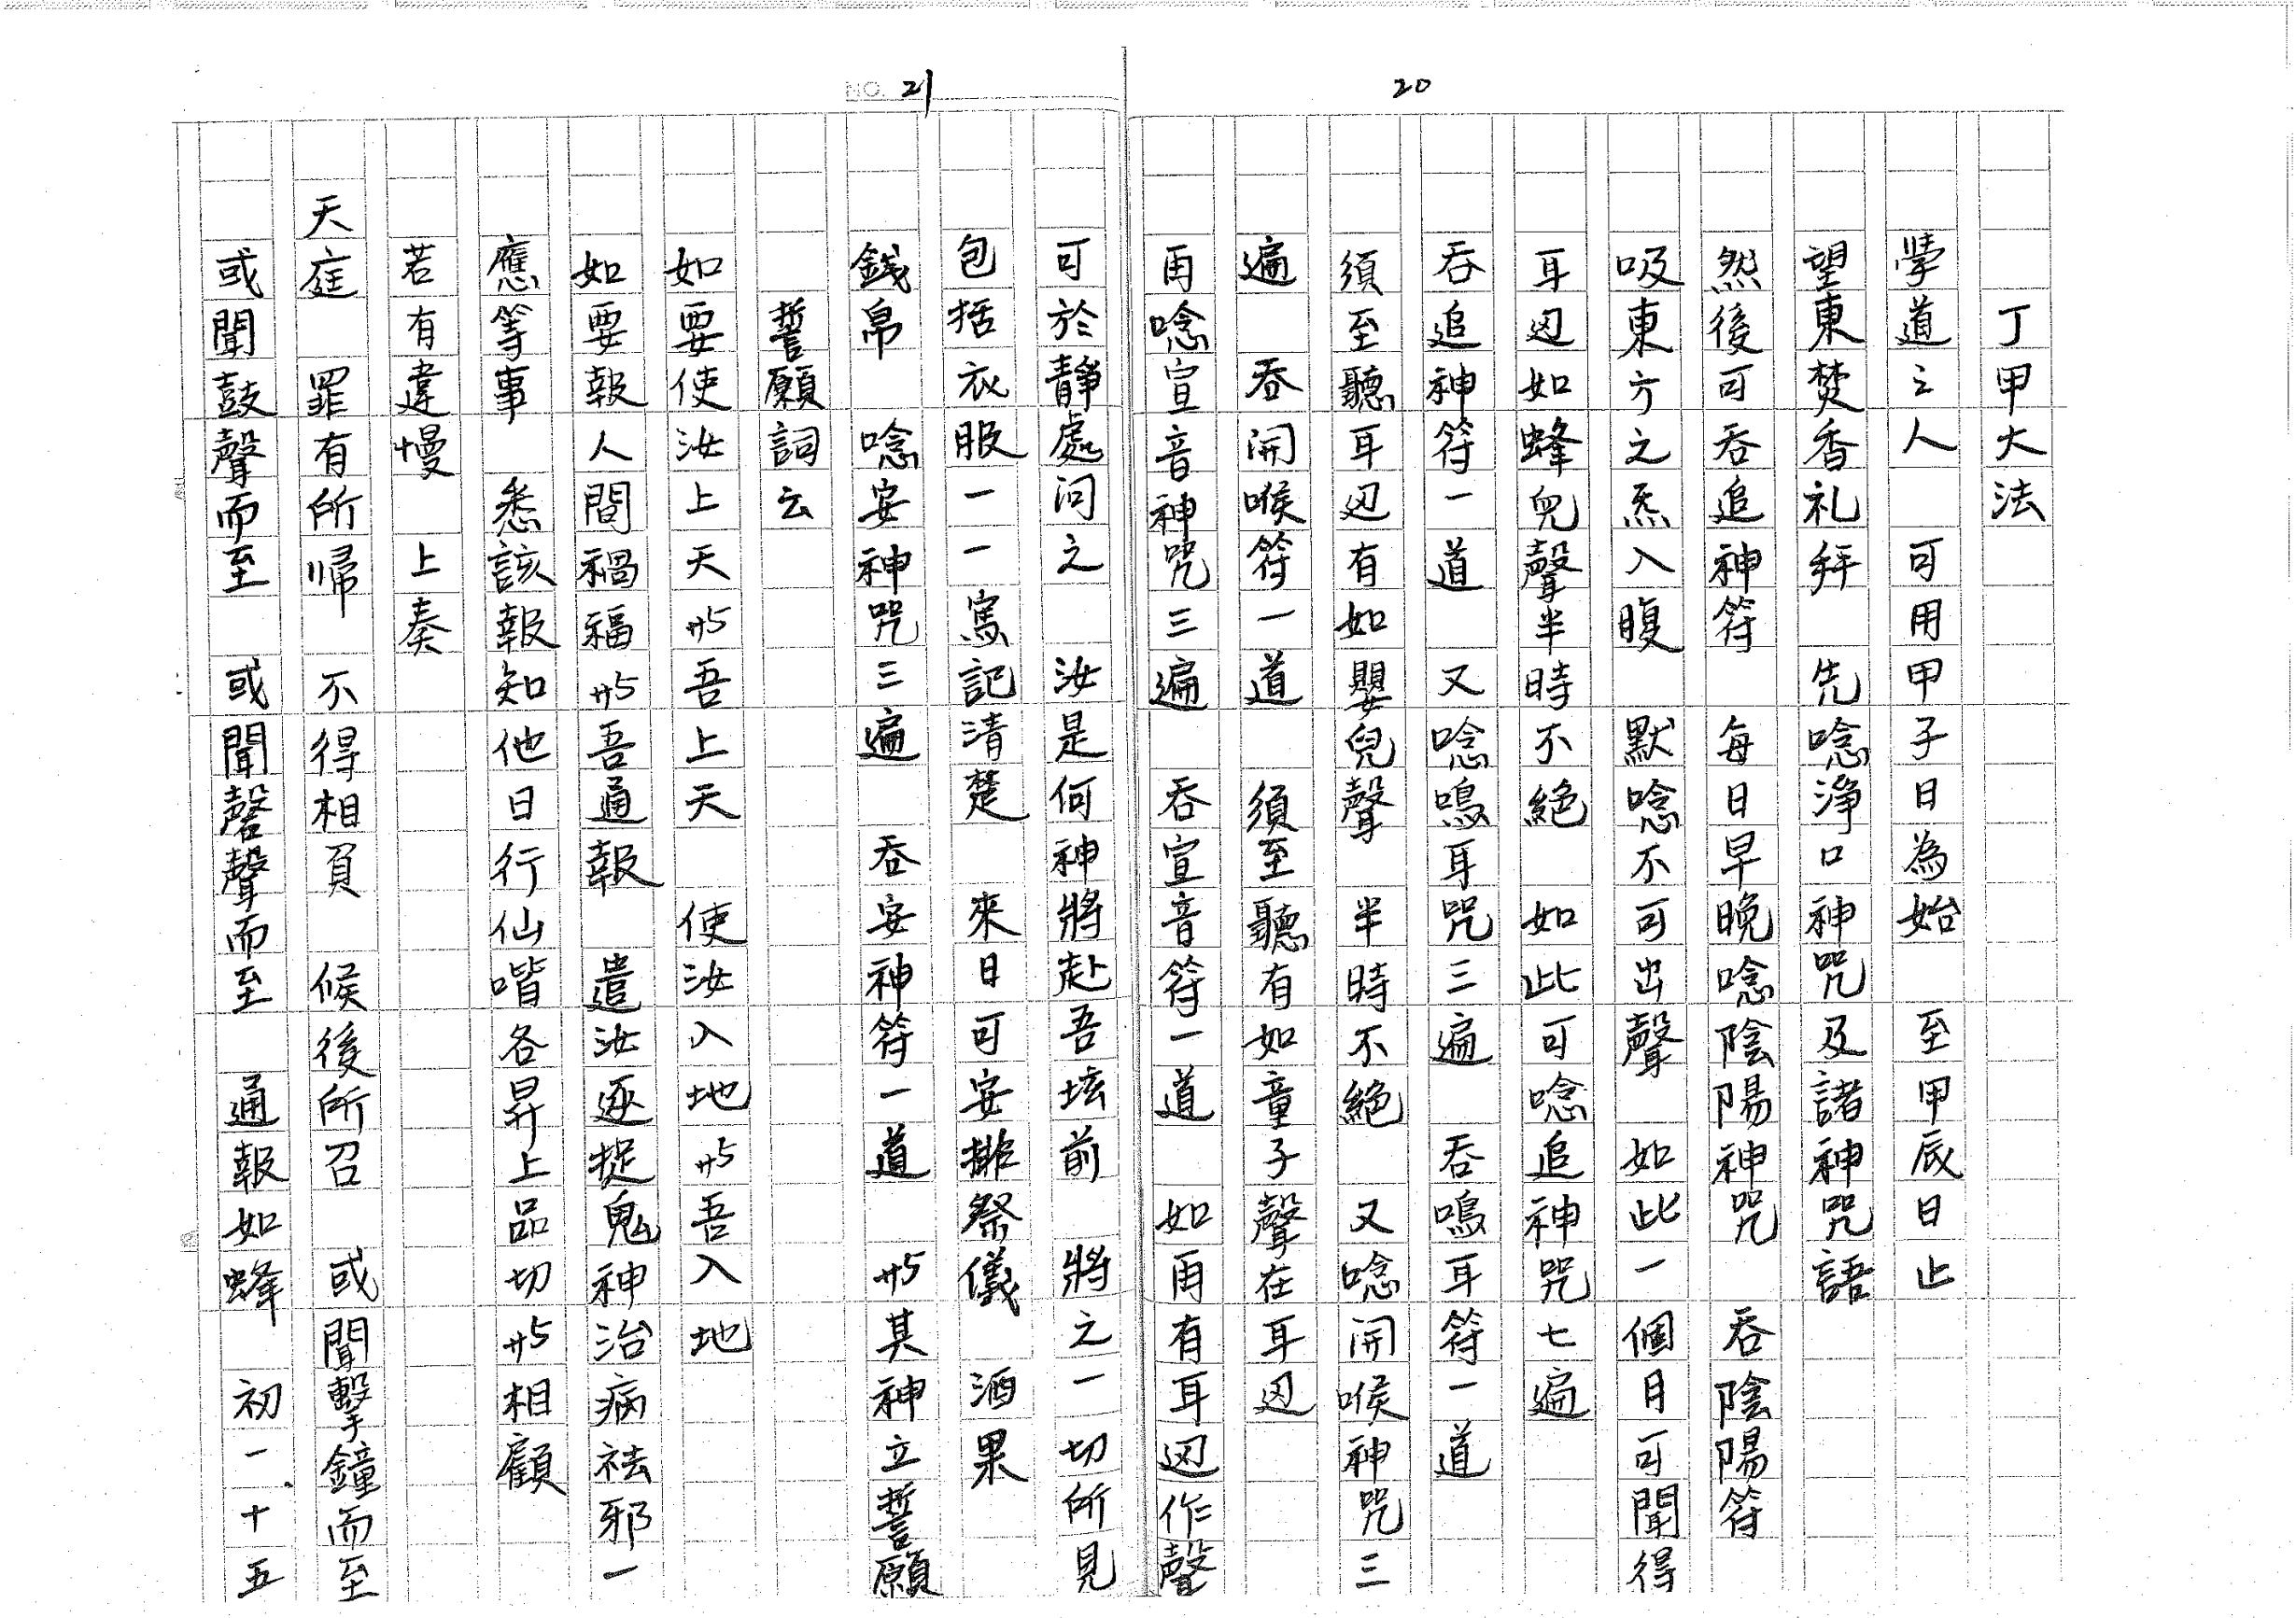 20
丁甲大法
學道之人 可用甲子日為始 至甲辰日止
望東焚香礼拜 先唸淨口神咒及諸神咒語
然後可吞追神符 每日早晚唸陰陽神咒 吞陰陽符
吸東方之炁入腹 默唸不可出聲 如此一個月可聞得
耳边如蜂兒聲半時不絕 如此可唸追神咒七遍
吞追神符一道 又唸鳴耳咒三遍 吞鳴耳符一道
須至聽耳边有如嬰兒聲 半時不絕 又唸開喉神咒三
遍 吞開喉符一道 須至聽有如童子聲在耳边
再唸宣音神咒三遍 吞宣音符一道 如再有耳边作聲
NO. 21
可於靜處问之 汝是何神將赴吾坛前 將之一切所見
包括衣服一一寫記清楚 來日可安排祭儀 酒果
錢帛 唸安神咒三遍 吞安神符一道 与其神立誓願
誓願詞云
如要使汝上天与吾上天 使汝入地与吾入地
如要報人間禍福与吾通報 遣汝逐捉鬼神治病祛邪一
應等事 悉該報知他日行仙喈各昇上品切与相顧
若有違慢 上奏
天庭 罪有所歸 不得相負 候後所召 或聞擊鐘而至
或聞鼓聲而至 或聞磬聲而至 通報如蜂 初一、十五